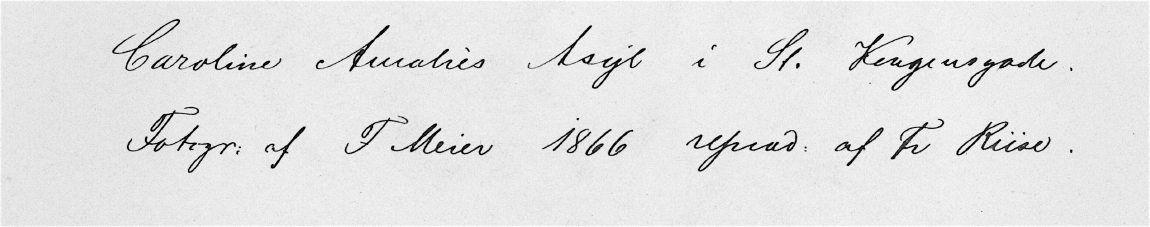 Caroline Amalies Asyl i St. Kongensgade.
Fotogr: af F Meier 1866 reprod: af Fr Riise.